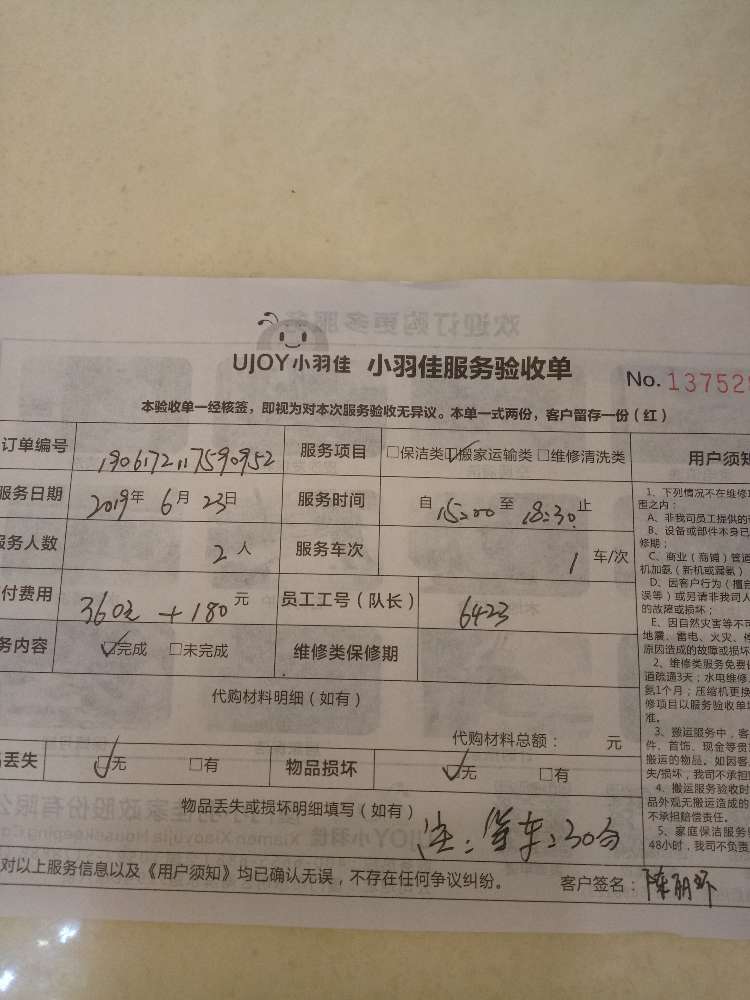 UJOY小羽佳 小羽佳服务验收单 No. 13752
本验收单一经核签，即视为对本次服务验收无异议。本单一式两份，客户留存一份（红）
订单编号 1906172117590952 服务项目 □保洁类☑搬家运输类 □维修清洗类 用户须知
服务日期 2019年 6月 23日 服务时间 自 15:00 至 18:30 止
服务人数 2人 服务车次 1 车/次
付费用 360元 + 180元 员工工号（队长） 6423
务内容 ☑完成 □未完成 维修类保修期
代购材料明细（如有）
代购材料总额： 元
丢失 ☑无 □有 物品损坏 ☑无 □有
物品丢失或损坏明细填写（如有）
注：等车：30分
对以上服务信息以及《用户须知》均已确认无误，不存在任何争议纠纷。 客户签名：
1、下列情况不在维修
围之内：
A、非我司员工提供的
B、设备或部件本身已
修期；
C、商业（商铺）管道
机加氨（新机或漏氨）
D、因客户行为（擅自
误等）或另请非我司人
的故障或损坏；
E、因自然灾害等不可
地震、雷电、火灾、
原因造成的故障或损坏
2、维修类服务免费
道疏通3天；水电维修
氨1个月；压缩机更换
修项目以服务验收单
准。
3、搬运服务中，客
件、首饰、现金等贵
搬运的物品。如因客
失/损坏，我司不承担
4、搬运服务验收时
品外观无搬运造成的
不承担赔偿责任。
5、家庭保洁服务
48小时，我司不负责